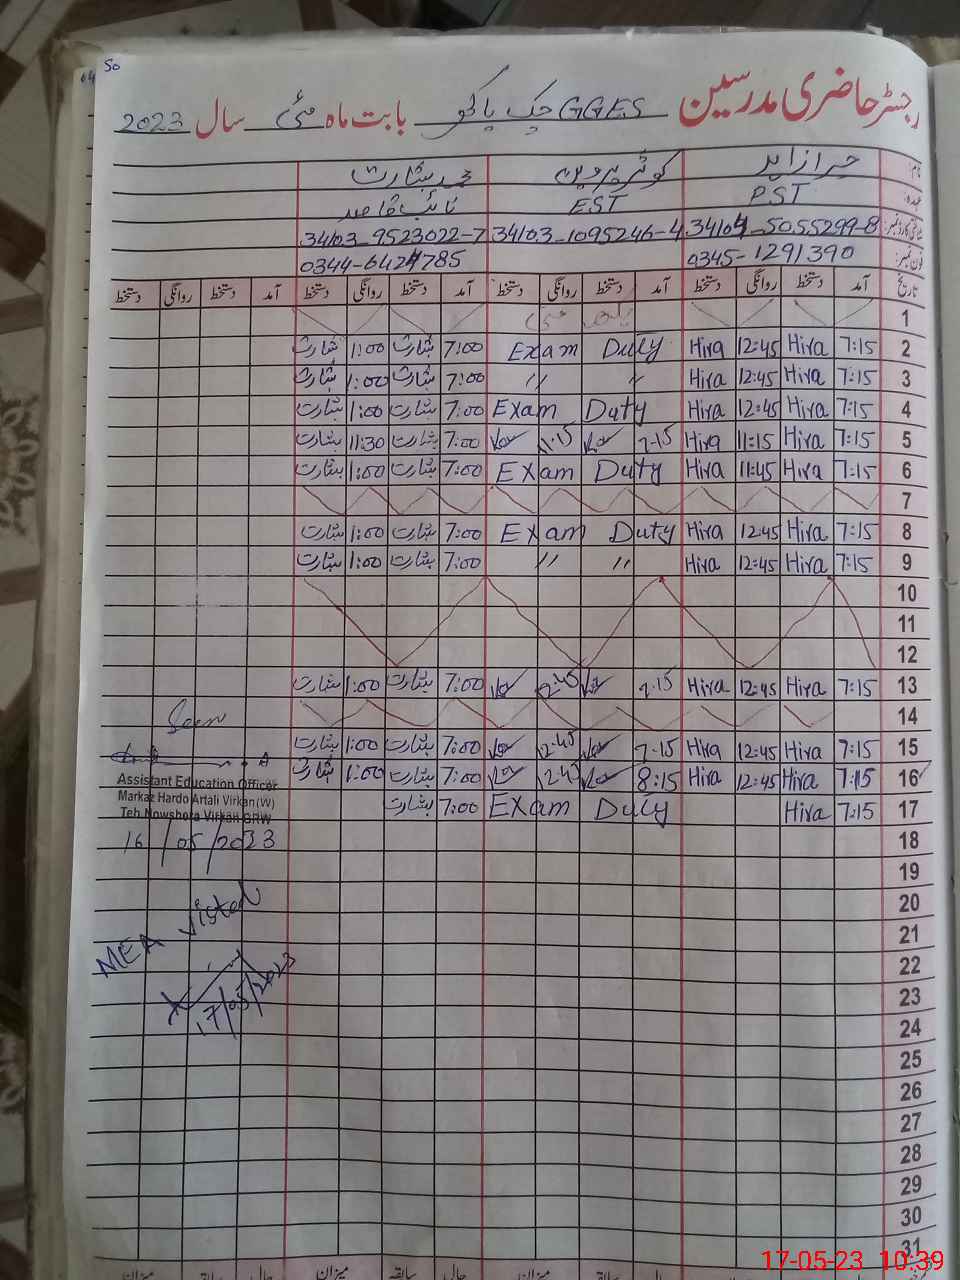 50
رجسٹر حاضری مدرسین GGES چک پاکھر بابت ماہ مئی سال 2023
نام: حرا زاہد کوثر پروین محمد بشارت
عہدہ: PST EST نائب قاصد
شناختی کارڈ نمبر: 34104-5055299-8 34103-1095246-4 34103-9523022-7
فون نمبر: 0345-1291390 0344-6424785
تاریخ آمد دستخط روانگی دستخط آمد دستخط روانگی دستخط آمد دستخط روانگی دستخط آمد دستخط روانگی دستخط
1 یکم مئی
2 7:15 Hira 12:45 Hira Exam Duty 7:00 بشارت 1:00 بشارت
3 7:15 Hira 12:45 Hira " " 7:00 بشارت 1:00 بشارت
4 7:15 Hira 12:45 Hira Exam Duty 7:00 بشارت 1:00 بشارت
5 7:15 Hira 11:15 Hira 7:15 11:15 7:00 بشارت 11:30 بشارت
6 7:15 Hira 11:45 Hira Exam Duty 7:00 بشارت 1:00 بشارت
7
8 7:15 Hira 12:45 Hira Exam Duty 7:00 بشارت 1:00 بشارت
9 7:15 Hira 12:45 Hira " " 7:00 بشارت 1:00 بشارت
10
11
12
13 7:15 Hira 12:45 Hira 7:15 12:45 7:00 بشارت 1:00 بشارت
14
15 7:15 Hira 12:45 Hira 7:15 12:45 7:00 بشارت 1:00 بشارت
16 7:15 Hira 12:45 Hira 8:15 12:45 7:00 بشارت 1:00 بشارت
17 7:15 Hira Exam Duty 7:00 بشارت
18
19
20
21
22
23
24
25
26
27
28
29
30
31
Seen
Assistant Education Officer
Markaz Hardo Artali Virkan (W)
Teh Nowshera Virkan GRW
16/05/2023
MEA visted
17/05/2023
میزان سابقہ حالی میزان سابقہ حالی میزان
17-05-23 10:39